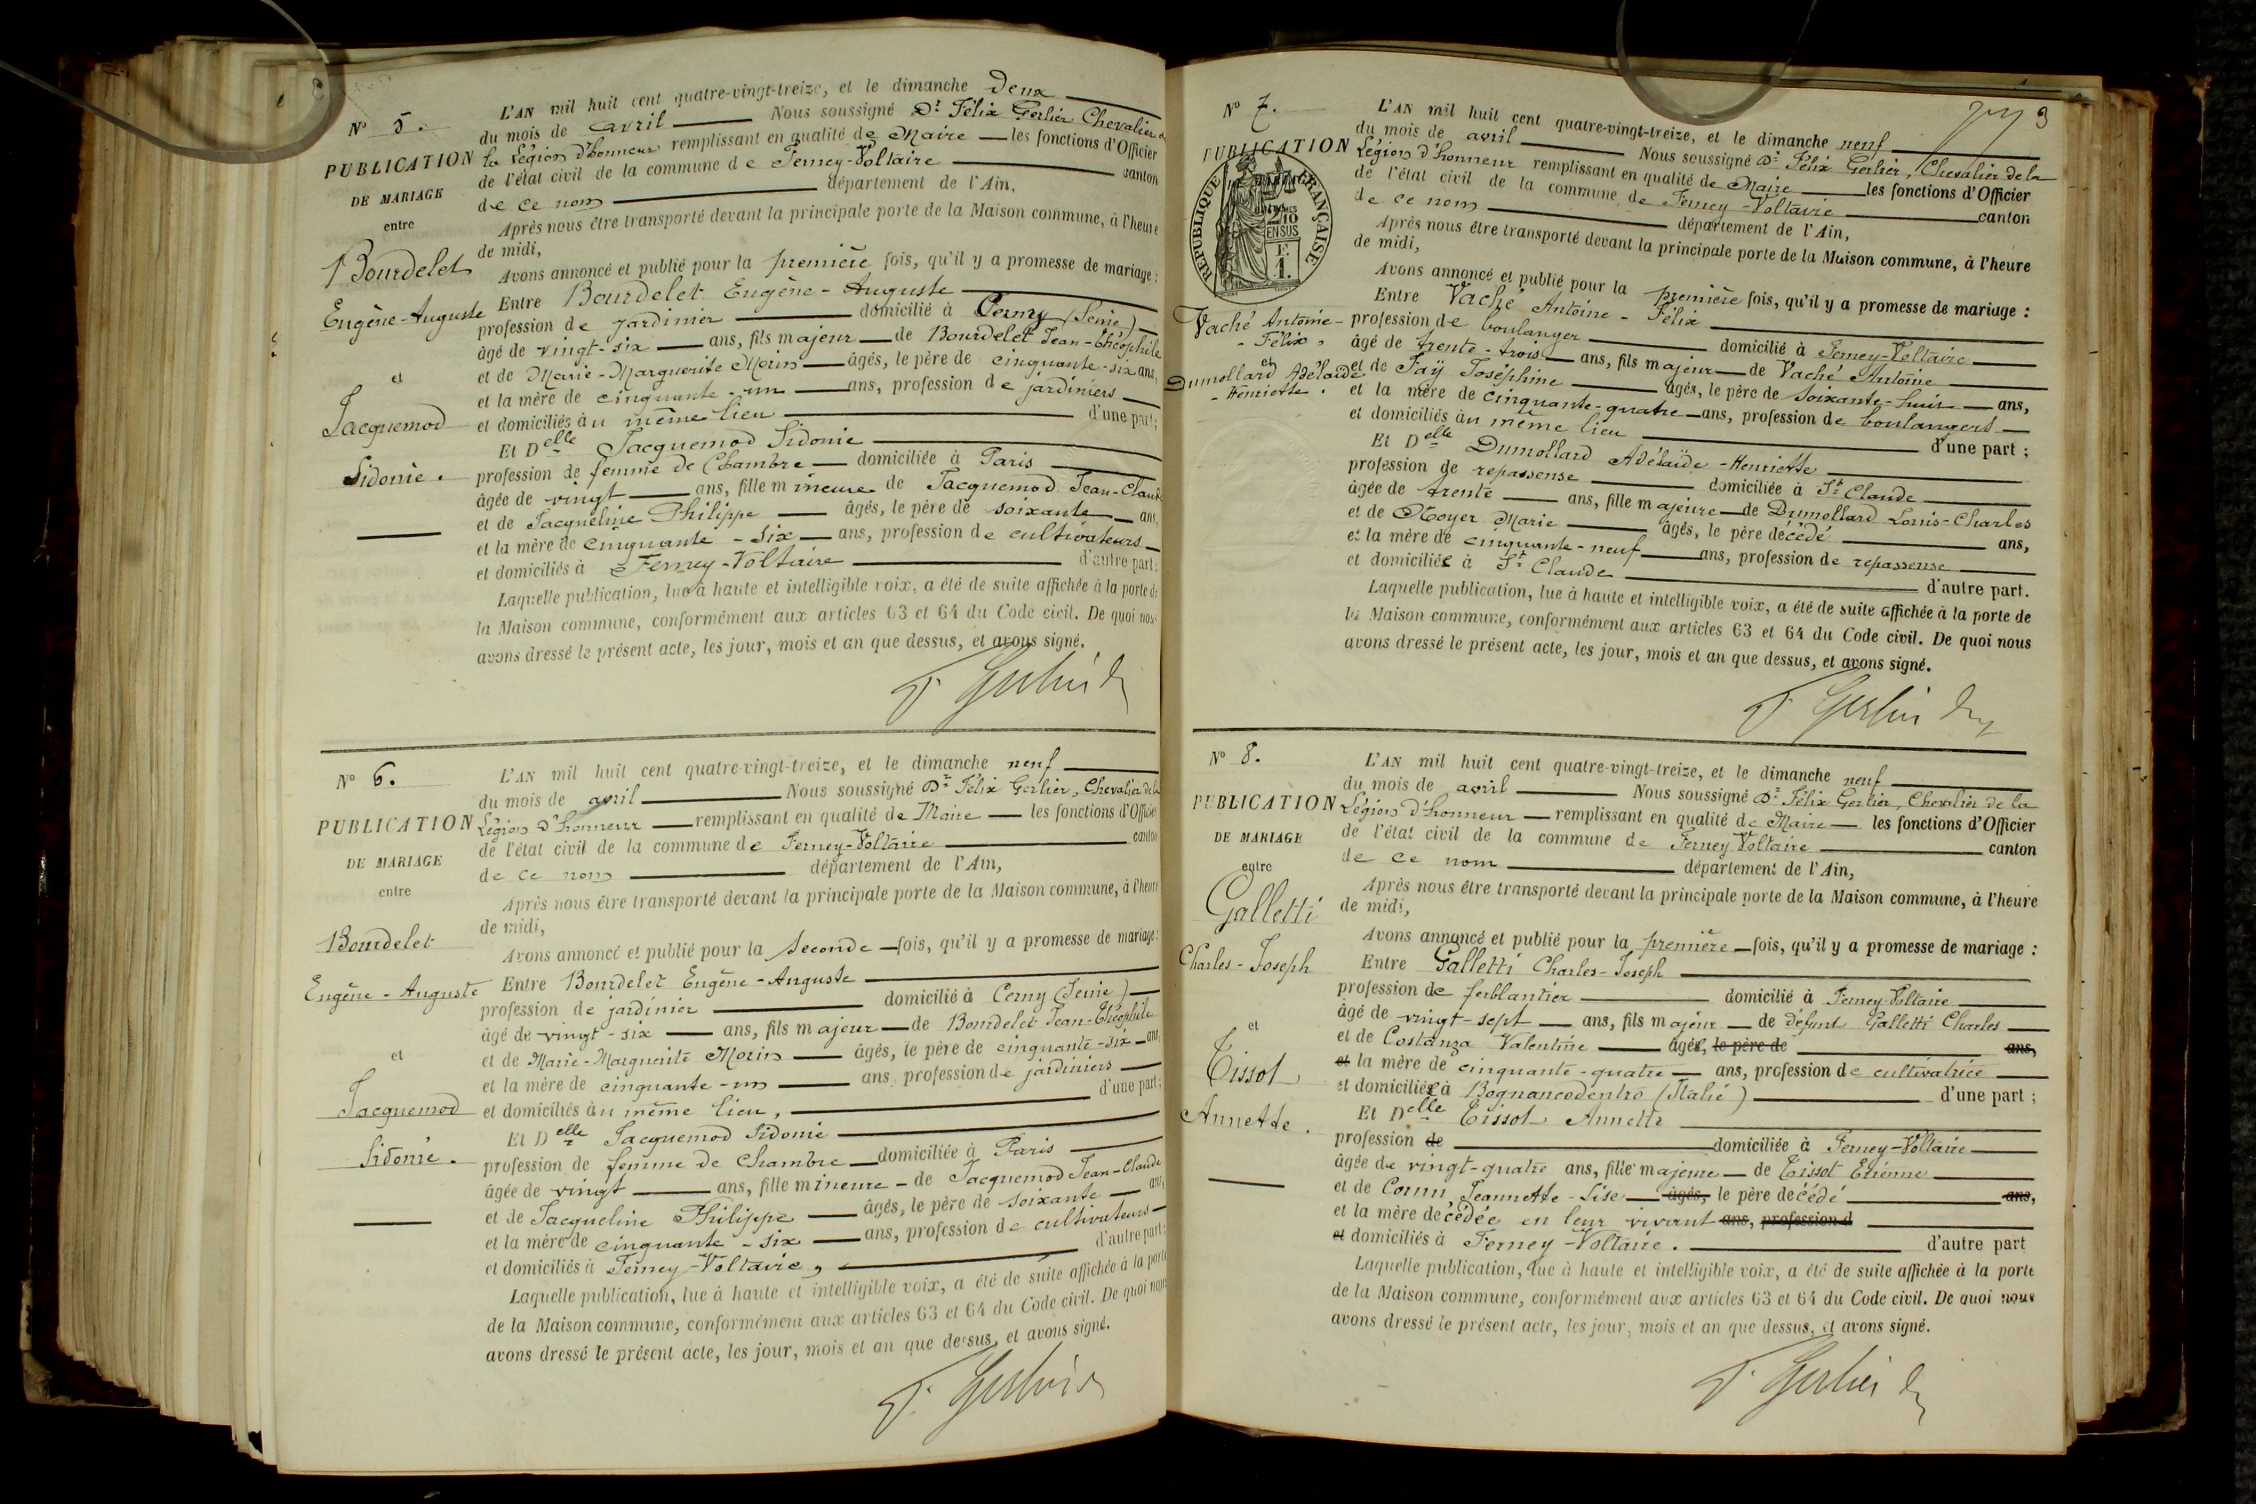 N° 5.
PUBLICATION
DE MARIAGE
entre
Bourdelet
Eugène-Auguste
et
Jacquemod
Sidonie.
L'AN mil huit cent quatre-vingt-treize, et le dimanche deux
du mois de avril Nous soussigné Dr Félix Gerlier Chevalier de
la Légion d'honneur remplissant en qualité de Maire les fonctions d'Officier
de l'état civil de la commune de Ferney-Voltaire canton
de ce nom département de l'Ain,
Après nous être transporté devant la principale porte de la Maison commune, à l'heure
de midi,
Avons annoncé et publié pour la première fois, qu'il y a promesse de mariage :
Entre Bourdelet Eugène-Auguste
profession de jardinier domicilié à Cerny (Seine)
âgé de vingt-six ans, fils majeur de Bourdelet Jean-Théophile
et de Marie-Marguerite Morin âgés, le père de cinquante-six ans,
et la mère de cinquante-un ans, profession de jardiniers
et domiciliés au même lieu d'une part;
Et Delle Jacquemod Sidonie
profession de femme de Chambre domiciliée à Paris
âgée de vingt ans, fille mineure de Jacquemod Jean-Claude
et de Jacqueline Philippe âgés, le père de soixante ans,
et la mère de cinquante-six ans, profession de cultivateurs
et domiciliés à Ferney-Voltaire d'autre part:
Laquelle publication, lue à haute et intelligible voix, a été de suite affichée à la porte de
la Maison commune, conformément aux articles 63 et 64 du Code civil. De quoi nous
avons dressé le présent acte, les jour, mois et an que dessus, et avons signé.
F. Gerlier Dr
N° 6.
PUBLICATION
DE MARIAGE
entre
Bourdelet
Eugène-Auguste
et
Jacquemod
Sidonie.
L'AN mil huit cent quatre-vingt-treize, et le dimanche neuf
du mois de avril Nous soussigné Dr Félix Gerlier, Chevalier de la
Légion d'honneur remplissant en qualité de Maire les fonctions d'Officier
de l'état civil de la commune de Ferney-Voltaire canton
de ce nom département de l'Ain,
Après nous être transporté devant la principale porte de la Maison commune, à l'heure
de midi,
Avons annoncé et publié pour la seconde fois, qu'il y a promesse de mariage :
Entre Bourdelet Eugène-Auguste
profession de jardinier domicilié à Cerny (Seine)
âgé de vingt-six ans, fils majeur de Bourdelet Jean-Théophile
et de Marie-Marguerite Morin âgés, le père de cinquante-six ans,
et la mère de cinquante-un ans, profession de jardiniers
et domiciliés au même lieu, d'une part;
Et Delle Jacquemod Sidonie
profession de femme de Chambre domiciliée à Paris
âgée de vingt ans, fille mineure de Jacquemod Jean-Claude
et de Jacqueline Philippe âgés, le père de soixante ans,
et la mère de cinquante-six ans, profession de cultivateurs
et domiciliés à Ferney-Voltaire, d'autre part:
Laquelle publication, lue à haute et intelligible voix, a été de suite affichée à la porte
de la Maison commune, conformément aux articles 63 et 64 du Code civil. De quoi nous
avons dressé le présent acte, les jour, mois et an que dessus, et avons signé.
F. Gerlier Dr
3
N° 7.
PUBLICATION
RÉPUBLIQUE FRANÇAISE
2/10
EN SUS
F.
1.
Vaché Antoine-
-Félix,
et
Dumollard Adélaïde
-Henriette.
L'AN mil huit cent quatre-vingt-treize, et le dimanche neuf
du mois de avril Nous soussigné Dr Félix Gerlier, Chevalier de la
Légion d'honneur remplissant en qualité de Maire les fonctions d'Officier
de l'état civil de la commune de Ferney-Voltaire canton
de ce nom département de l'Ain,
Après nous être transporté devant la principale porte de la Maison commune, à l'heure
de midi,
Avons annoncé et publié pour la première fois, qu'il y a promesse de mariage :
Entre Vaché Antoine-Félix
profession de boulanger domicilié à Ferney-Voltaire
âgé de trente-trois ans, fils majeur de Vaché Antoine
et de Faÿ Joséphine âgés, le père de soixante-huit ans,
et la mère de cinquante-quatre ans, profession de boulangers
et domiciliés au même lieu d'une part ;
Et Delle Dumollard Adélaïde-Henriette
profession de repasseuse domiciliée à St Claude
âgée de trente ans, fille majeure de Dumollard Louis-Charles
et de Moyer Marie âgés, le père décédé ans,
et la mère de cinquante-neuf ans, profession de repasseuse
et domiciliée à St Claude d'autre part.
Laquelle publication, lue à haute et intelligible voix, a été de suite affichée à la porte de
la Maison commune, conformément aux articles 63 et 64 du Code civil. De quoi nous
avons dressé le présent acte, les jour, mois et an que dessus, et avons signé.
F. Gerlier Dr
N° 8.
PUBLICATION
DE MARIAGE
entre
Galletti
Charles-Joseph
et
Tissot
Annette.
L'AN mil huit cent quatre-vingt-treize, et le dimanche neuf
du mois de avril Nous soussigné Dr Félix Gerlier, Chevalier de la
Légion d'honneur remplissant en qualité de Maire les fonctions d'Officier
de l'état civil de la commune de Ferney Voltaire canton
de ce nom département de l'Ain,
Après nous être transporté devant la principale porte de la Maison commune, à l'heure
de midi,
Avons annoncé et publié pour la première fois, qu'il y a promesse de mariage :
Entre Galletti Charles-Joseph
profession de ferblantier domicilié à Ferney-Voltaire
âgé de vingt-sept ans, fils majeur de défunt Galletti Charles
et de Costanza Valentine âgés, le père de ans,
et la mère de cinquante-quatre ans, profession de cultivatrice
et domiciliée à Bognancodentro (Italie) d'une part ;
Et Delle Tissot Annette
profession de domiciliée à Ferney-Voltaire
âgée de vingt-quatre ans, fille majeure de Tissot Etienne
et de Jeannette-Lise âgés, le père décédé ans,
et la mère décédée en leur vivant ans, profession d
et domiciliés à Ferney-Voltaire. d'autre part
Laquelle publication, lue à haute et intelligible voix, a été de suite affichée à la porte
de la Maison commune, conformément aux articles 63 et 64 du Code civil. De quoi nous
avons dressé le présent acte, les jour, mois et an que dessus, et avons signé.
F. Gerlier Dr